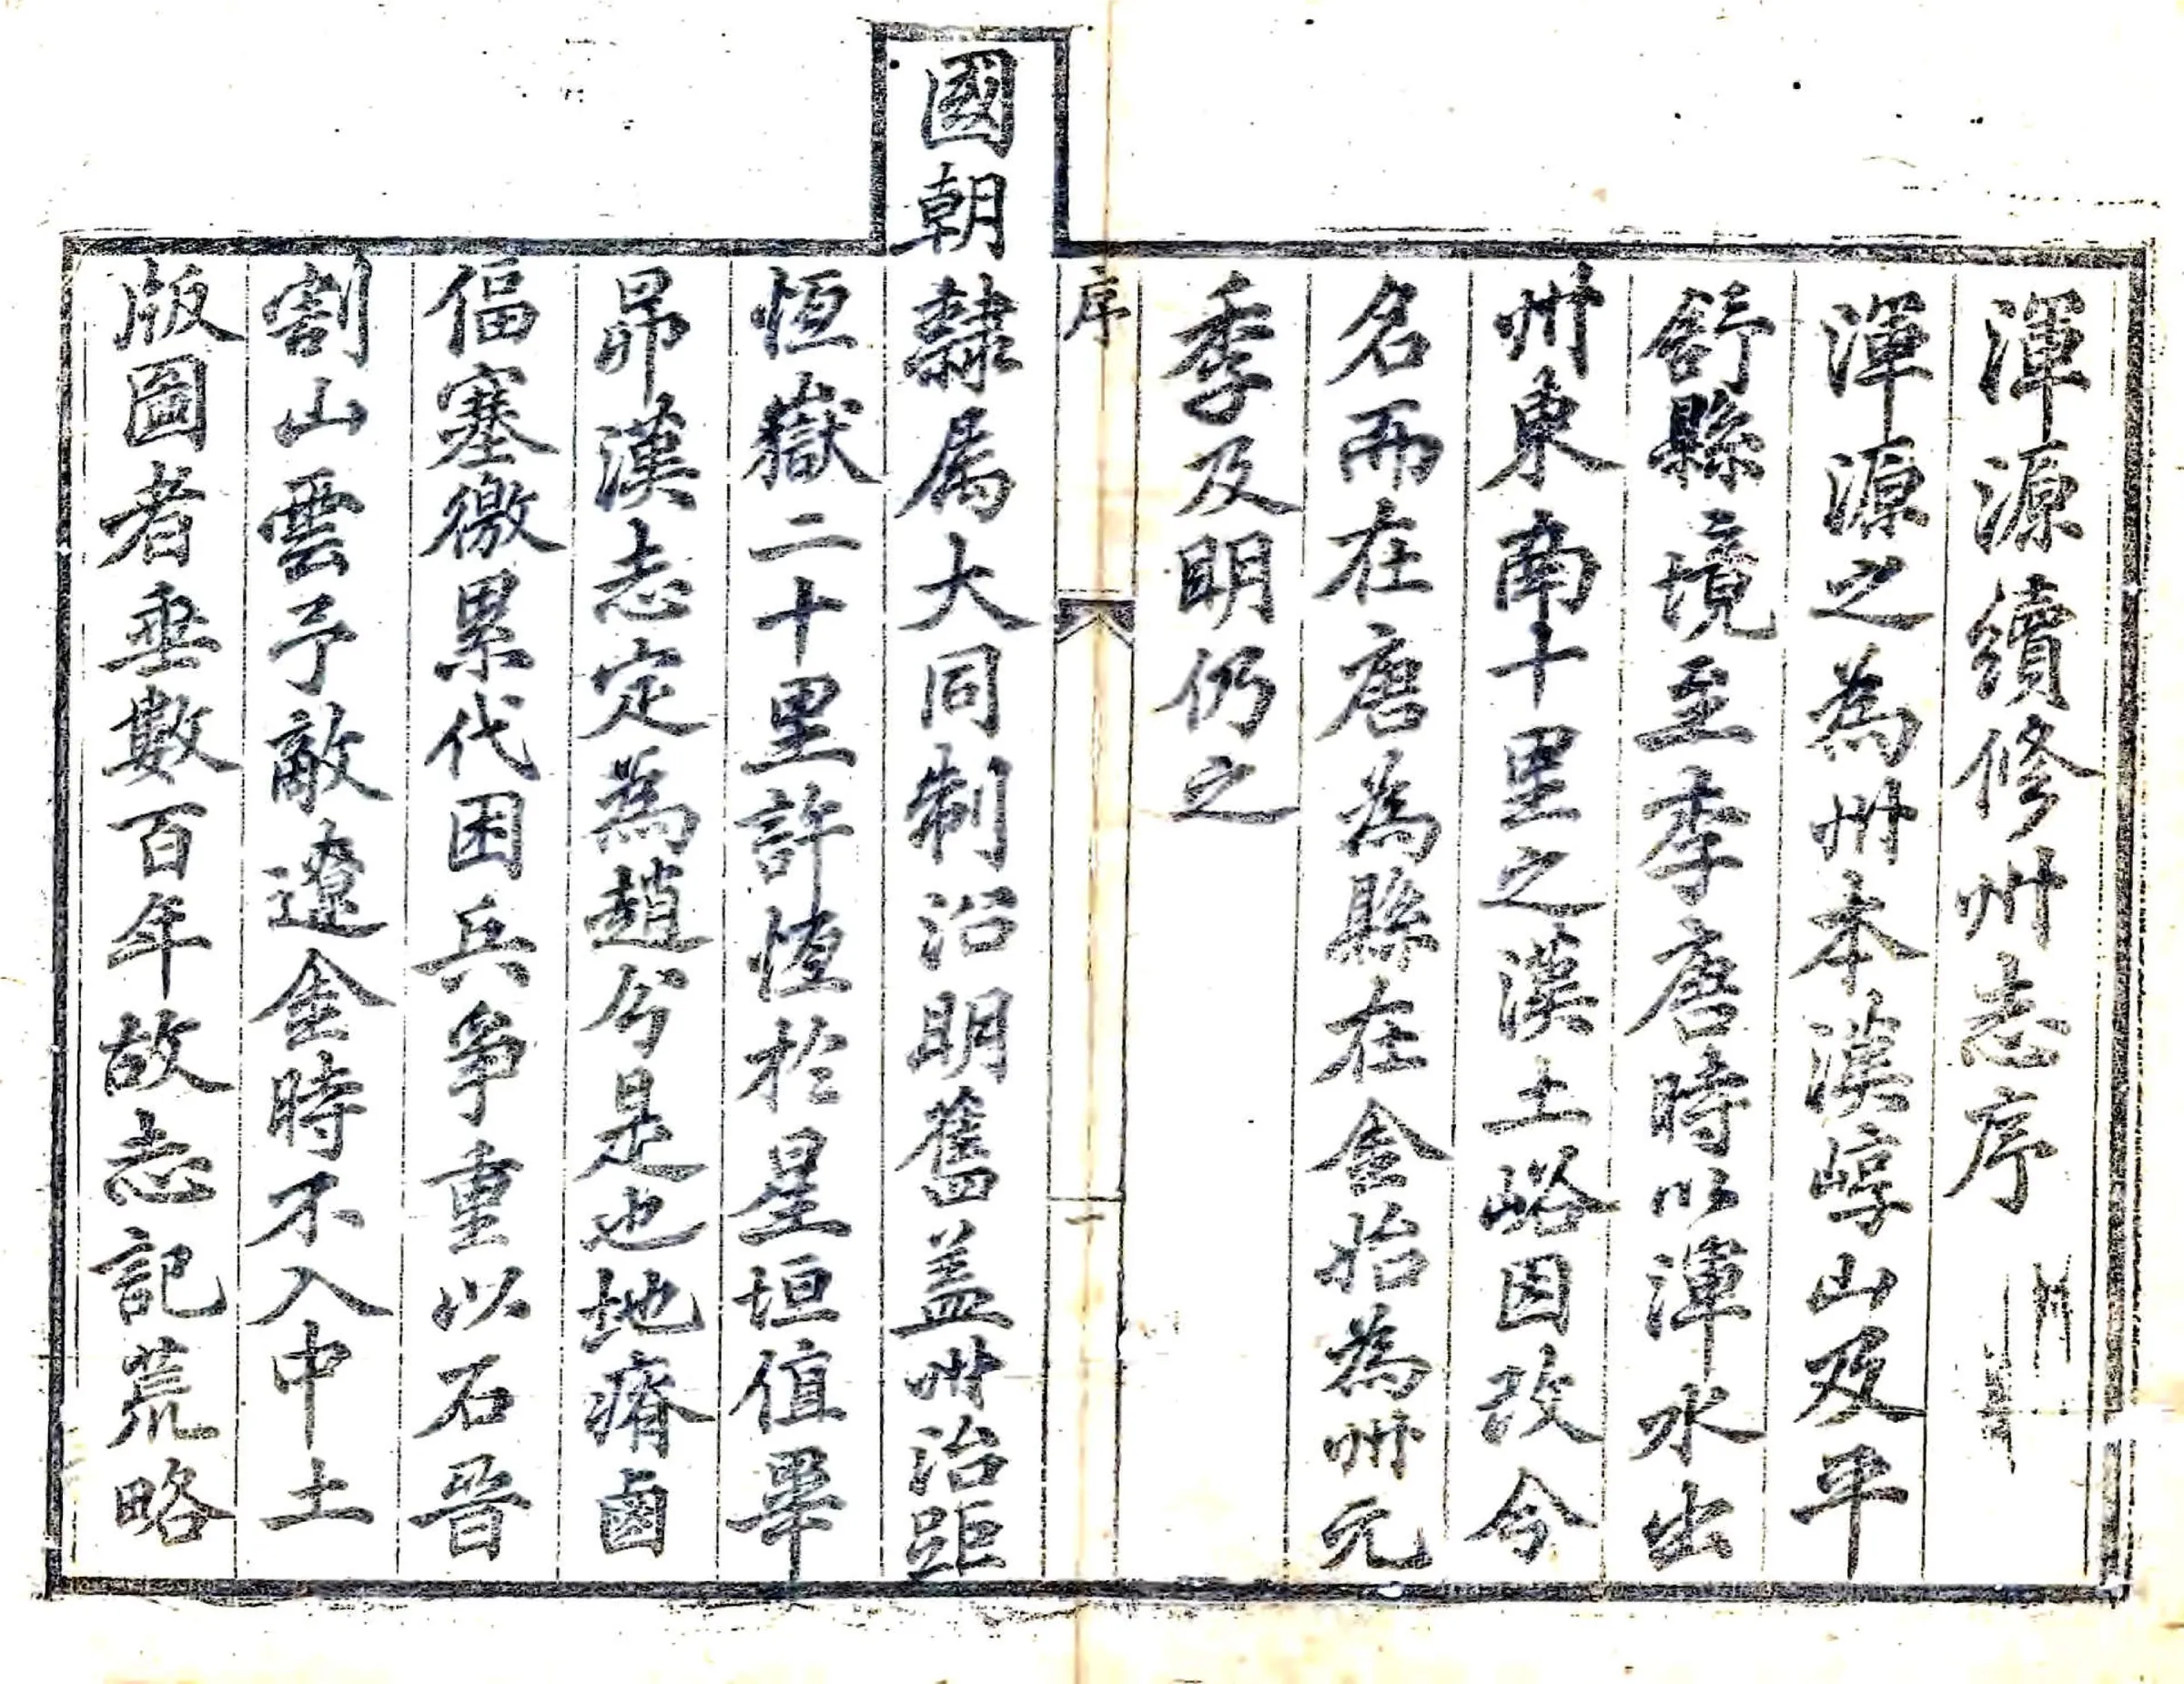 渾源續修州志序
渾源之為州本漢崞山及平
舒縣境至李唐時以渾水出
州東南十里之漢土峪因改今
名而在唐為縣在金始為州元
季及明仍之
序
一
國朝隸属大同制沿明舊盖州治距
恆嶽二十里許恆於星垣值畢
昴漢志定為趙分是也地瘠鹵
偪塞徼累代困兵爭重以石晉
割山雲予敵遼金時不入中土
版圖者垂數百年故志記荒略